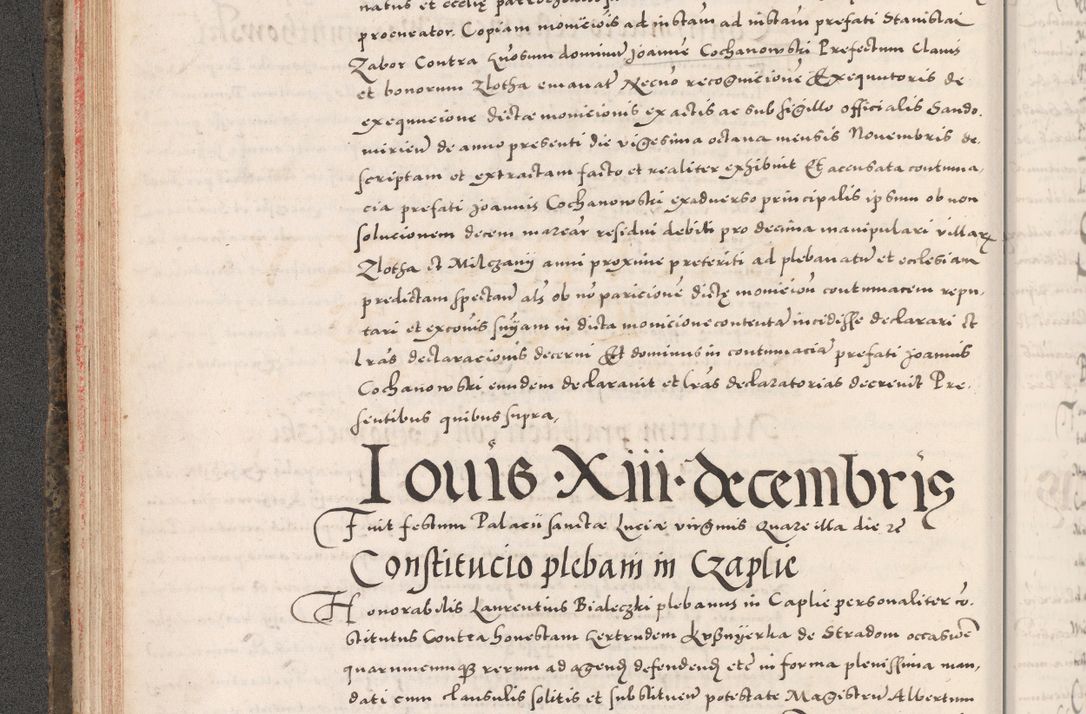 procurator. Copiam monicionis ad instam ad instam prefati Stanislai
Zabor Contra Gnosum dominum Joannē Cochanowski Prefectum Clavis
et bonorum Zlotha emanatę Necnō recognicionē Exequutoris de
exequucione dictæ monicionis ex actis ac sub sigillo officialis Sando.
miriēn de anno presenti die vigesima octava mensis Novembris de.
scriptam et extractam facto et realiter exhibuit Et accusata contuma,
cia prefati Joannis Cochanowski ex adverso principalis ipsum ob non
solucionem decem marcar residui debiti pro decima manipulari villarz
Zlotha et Milczany anni proxime preteriti ad plebanatū et ecclesiam
predictam spectań als ob nō paricionē dictę monicion contumacem repu,
tari et excōis sniam in dicta monicione contentā incidisse declarari et
lrās declaracionis decerni Et dominus in contumaciā prefati Joannis
Cochanowski eundem declaravit et lrās declaratorias decrevit Pre,
sentibus quibus supra,
Iouis ·Xiii· decembris
Fuit festum Palacii sanctæ Luciæ virginis quare illa die
Constitucio plebani in Czaplie
Honorabilis Laurentius Bialeczki plebanus in Caplie personaliter cō.
stitutus Contra honestam Gertrudem de Stradom occasiōē
quarumcumque rerum ad agend defendend etc in forma plenissima man,
dati cum clausulis solitis et substituen potestate Magistrū Albertum